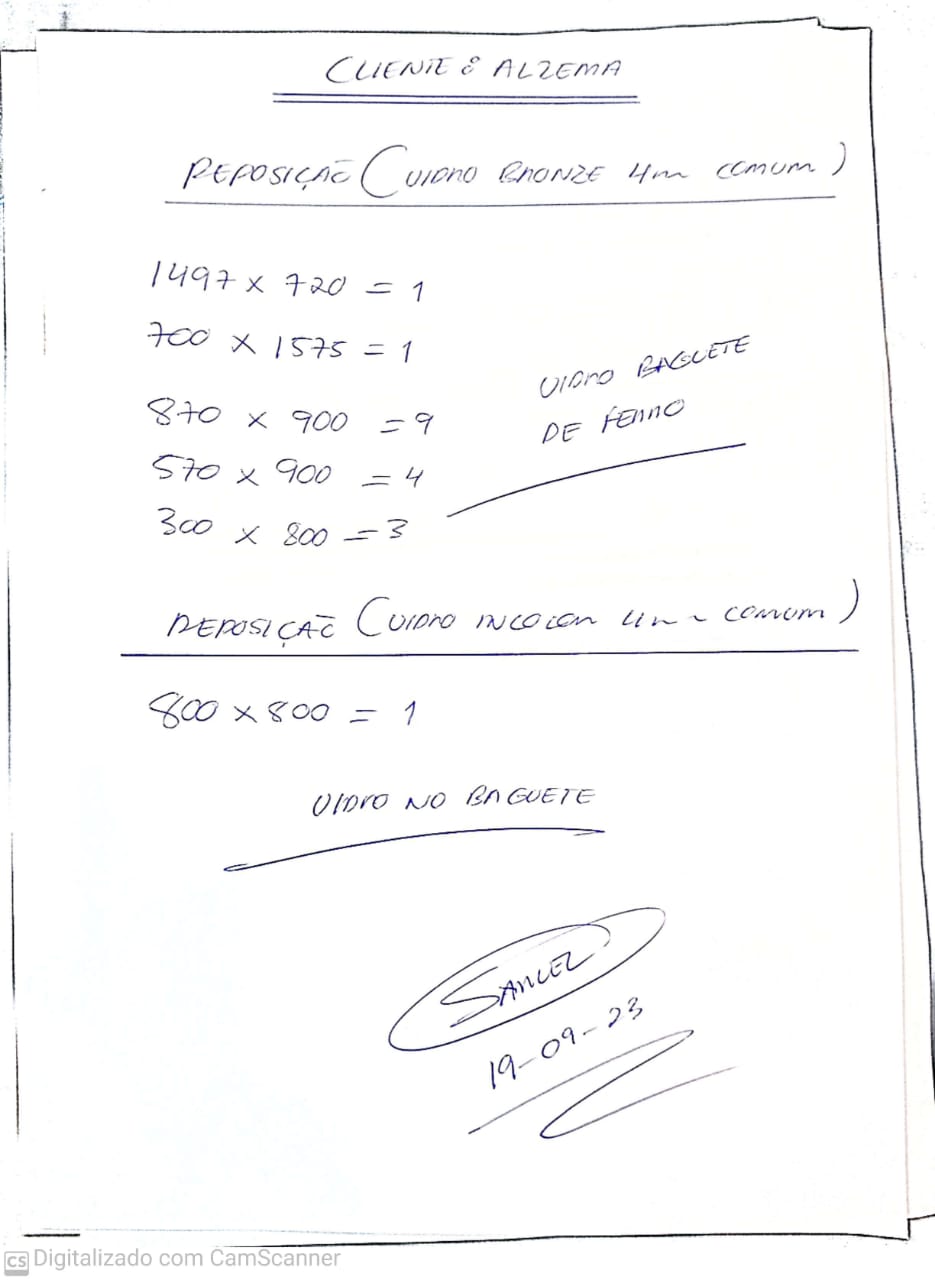 CLIENTE: ALZEMA
REPOSIÇÃO (VIDRO BRONZE 4mm COMUM)
1497 x 720 = 1
700 x 1575 = 1
870 x 900 = 9
570 x 900 = 4
300 x 800 = 3
VIDRO BAGUETE
DE FERRO
REPOSIÇÃO (VIDRO INCOLOR 4mm COMUM)
800 x 800 = 1
VIDRO NO BAGUETE
19-09-23
CS Digitalizado com CamScanner